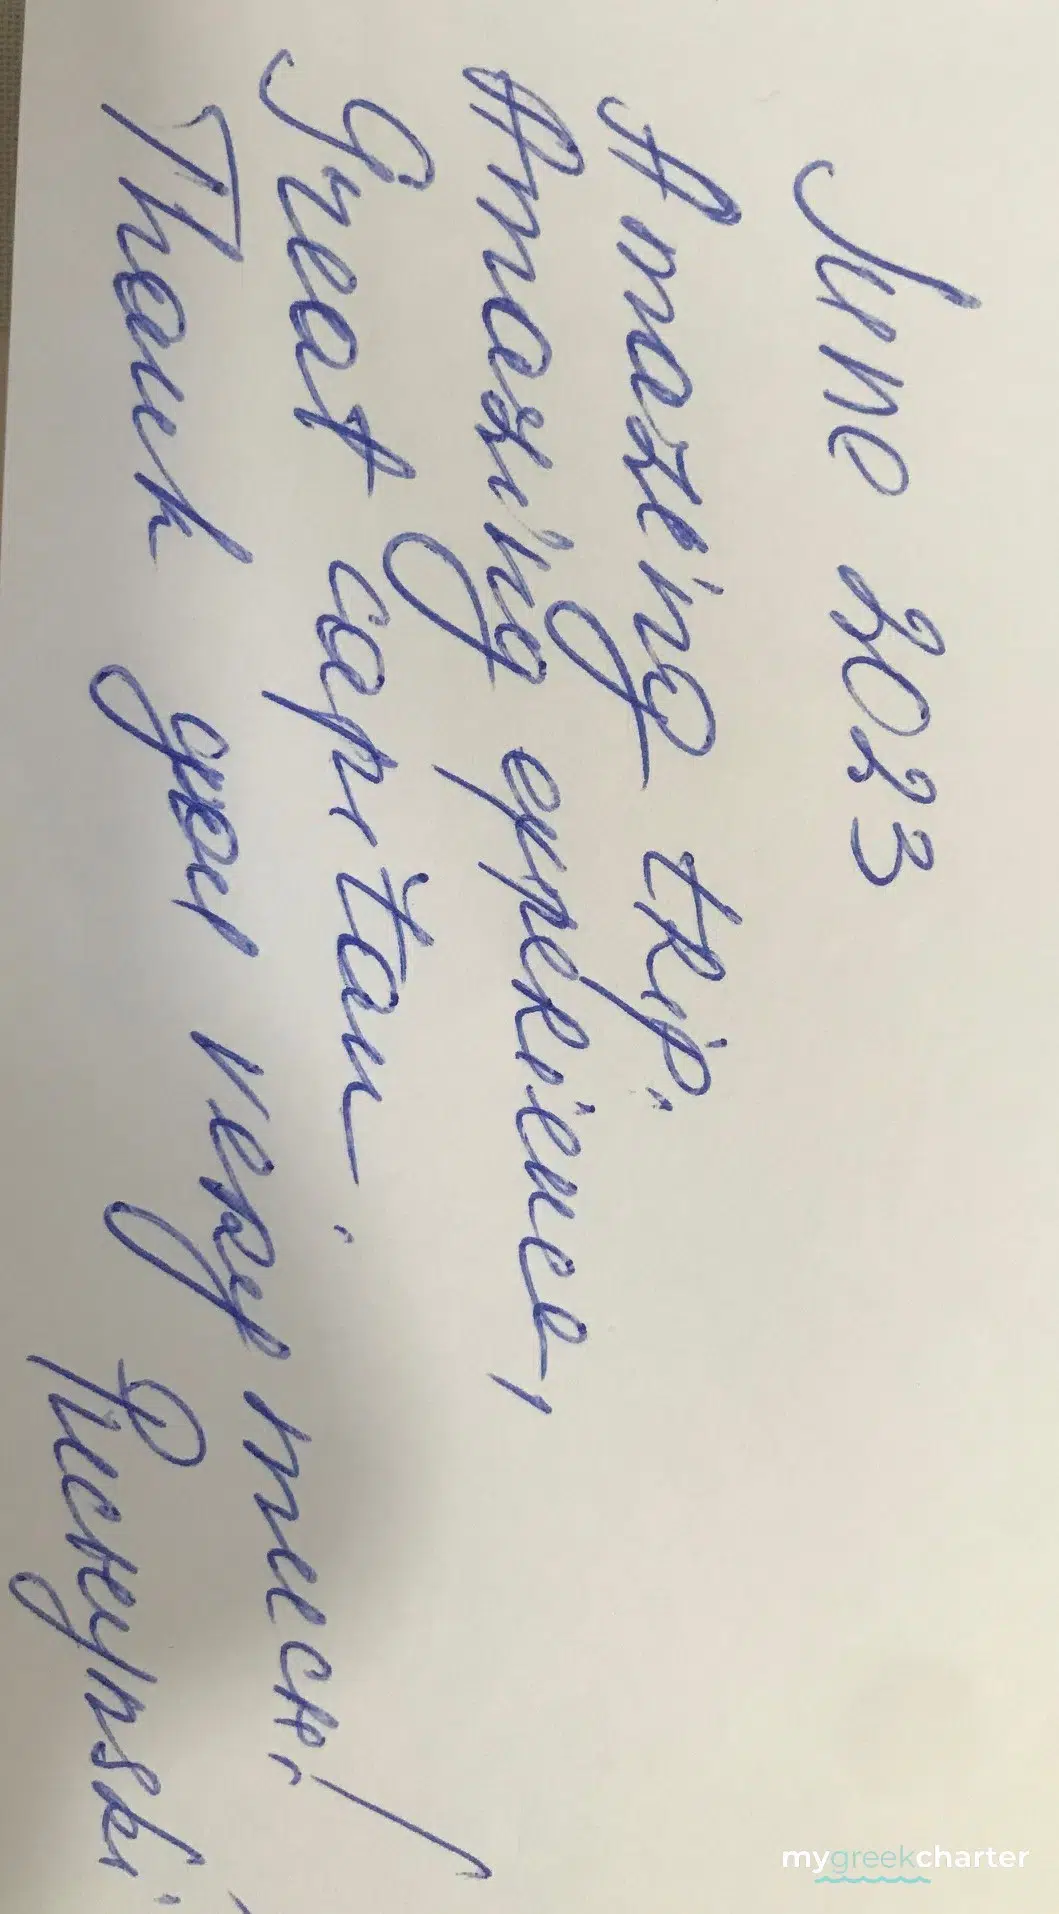 June 2023
Amazing trip.
Amazing experience,
Great capitan.
Thank you very much!
mygreekcharter